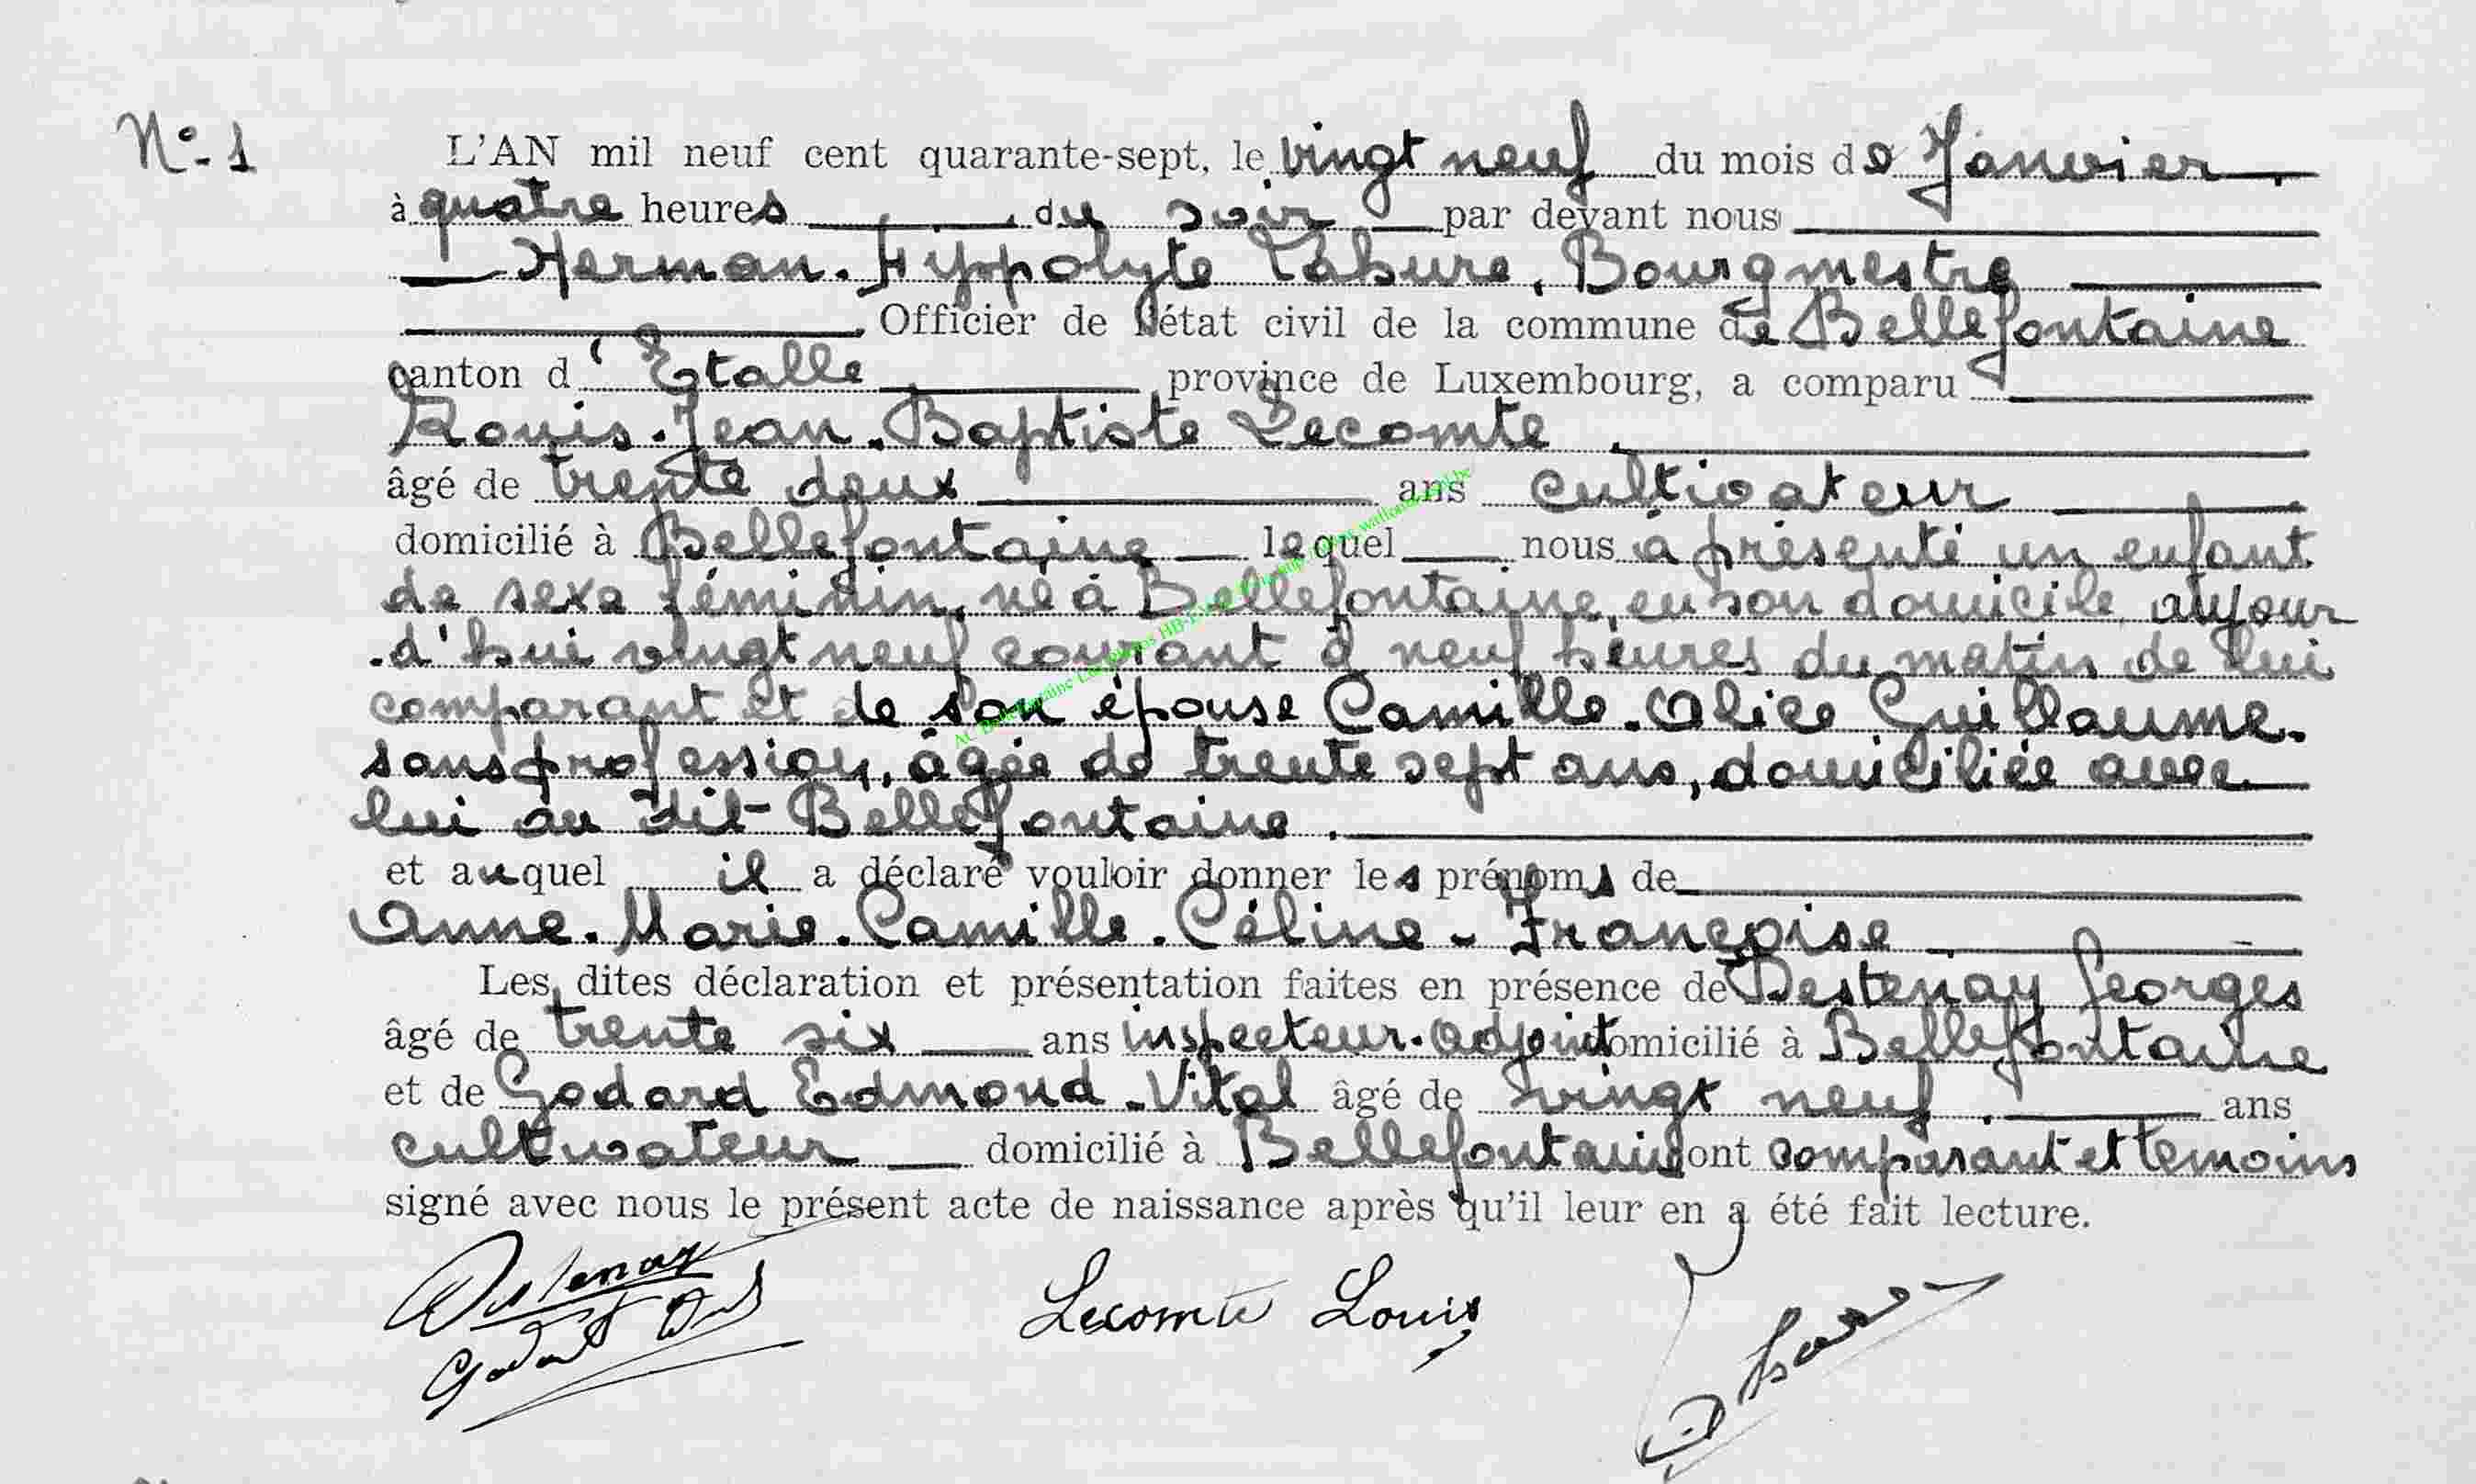 N° 1
L'AN mil neuf cent quarante-sept, le vingt neuf du mois de Janvier.
à quatre heures du soir par devant nous
Herman. Hippolyte Lahure, Bourgmestre
Officier de l'état civil de la commune de Bellefontaine
canton d'Etalle province de Luxembourg, a comparu
Louis. Jean. Baptiste Lecomte.
âgé de trente deux ans cultivateur
domicilié à Bellefontaine lequel nous a présenté un enfant
de sexe féminin, né à Bellefontaine, en son domicile, aujour
-d'hui vingt neuf courant à neuf heures du matin de lui
comparant et de son épouse Camille. Alice Guillaume.
sans profession, âgée de trente sept ans, domiciliée avec
lui au dit Bellefontaine.
et auquel il a déclaré vouloir donner les prénoms de
Anne. Marie. Camille. Céline - Françoise
Les dites déclaration et présentation faites en présence de Destenay Georges
âgé de trente six ans inspecteur-adjoint domicilié à Bellefontaine
et de Godard Edmond-Vital âgé de vingt neuf. ans
cultivateur domicilié à Bellefontaine ont comparant et temoins
signé avec nous le présent acte de naissance après qu'il leur en a été fait lecture.
Destenay
Lecomte Louis
Godard